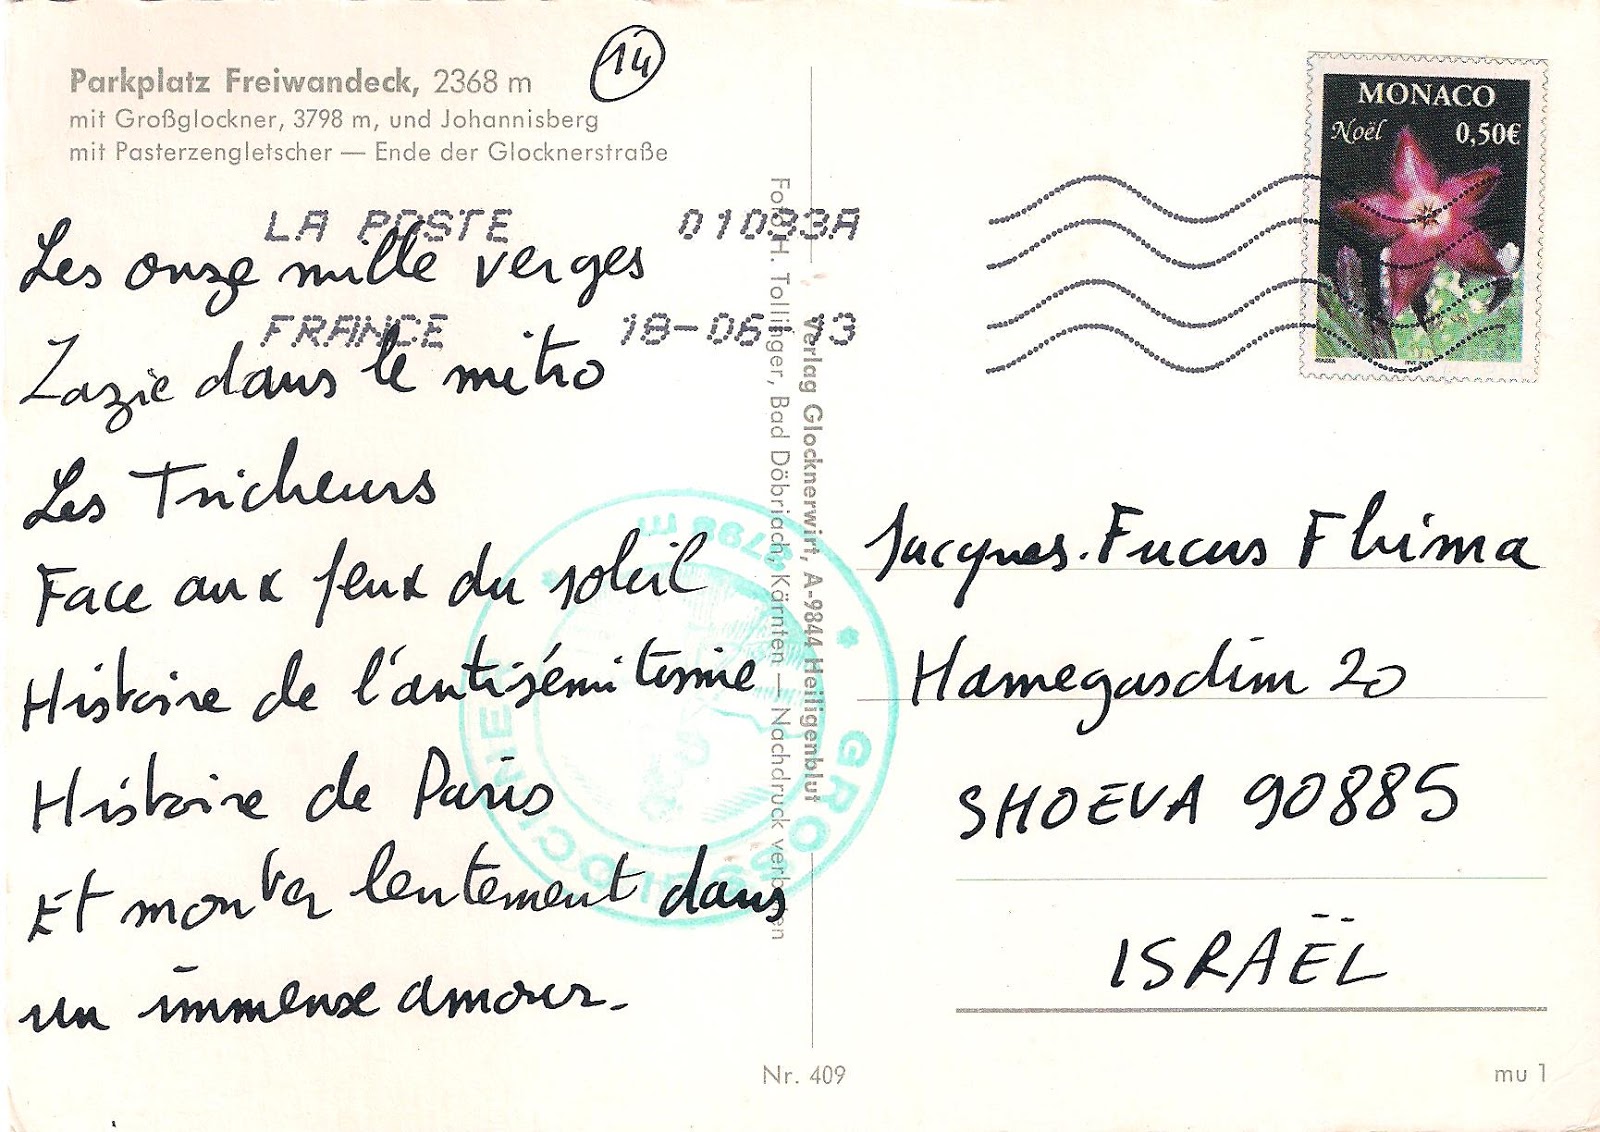 Parkplatz Freiwandeck, 2368 m
mit Großglockner, 3798 m, und Johannisberg
mit Pasterzengletscher — Ende der Glocknerstraße
14
LA POSTE 01083A
FRANCE 18-06-13
Les onze mille verges
Zazie dans le métro
Les Tricheurs
Face aux feux du soleil
Histoire de l'antisémitisme
Histoire de Paris
Et monter lentement dans
un immense amour.
Foto H. Tollinger, Bad Döbriach, Kärnten — Nachdruck verboten
Verlag Glocknerwirt, A-9844 Heiligenblut
GROSSGLOCKNER
3798 m
MONACO
Noël 0,50€
Jacques-Fucus Flhima
Hamegasdim 20
SHOEVA 90885
ISRAËL
Nr. 409
mu 1